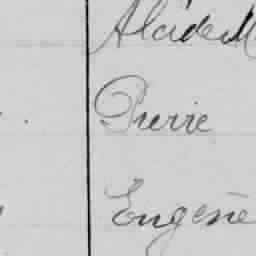 Alcide M
Pierre
Eugène